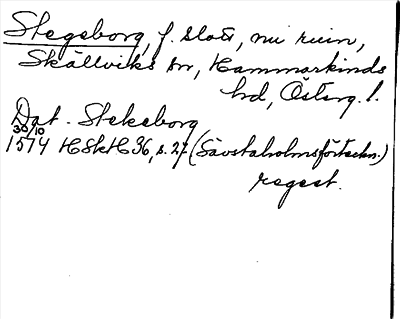 Stegeborg, f. slott, nu ruin,
Skällviks sn, Hammarkinds
hd, Österg. l.
Dat. Stekeborg
30/10
1574 HSkH 36, s. 27 (Sävstaholmsförteckn.)
regest.